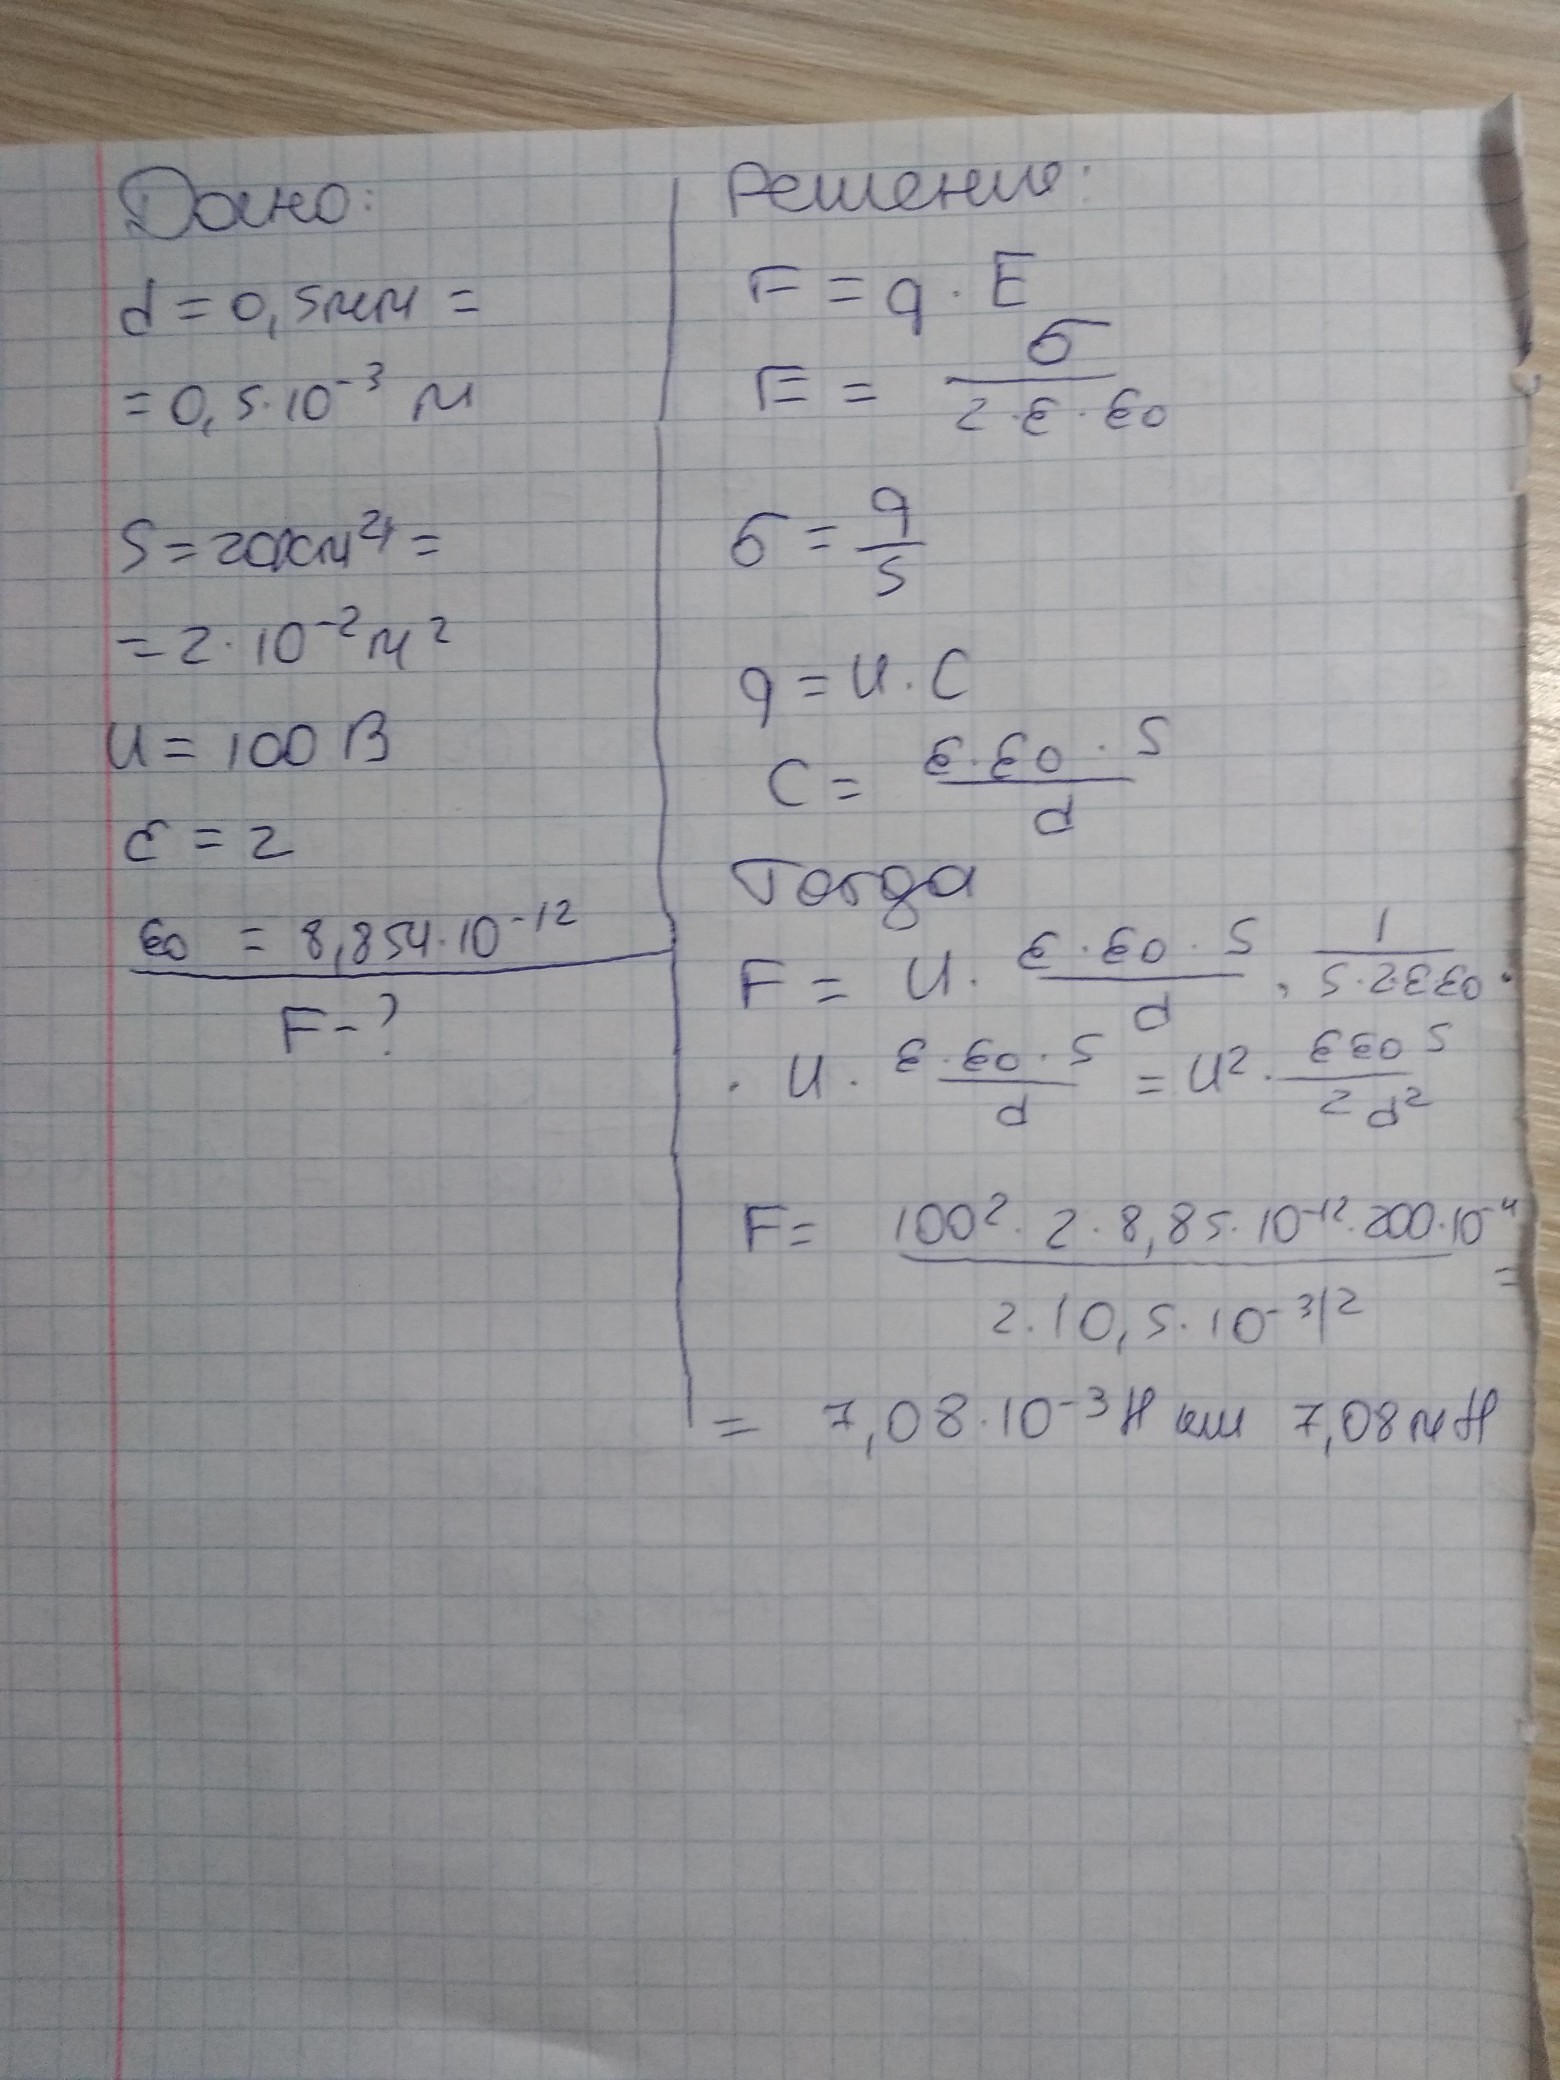 Дано:
d = 0,5мм =
= 0,5·10⁻³ м
S = 200см² =
= 2·10⁻² м²
U = 100 В
ε = 2
ε0 = 8,854·10⁻¹²
F - ?
Решение:
F = q · E
E = σ / (2·ε·ε0)
σ = q / S
q = U · C
C = (ε·ε0·S) / d
Тогда
F = U · (ε·ε0·S) / d · 1 / (S·2·εε0) ·
· U · (ε·ε0·S) / d = U² · (εε0S) / (2d²)
F = (100² · 2 · 8,85·10⁻¹² · 200·10⁻⁴) / (2·(0,5·10⁻³)²) =
= 7,08·10⁻³ Н или 7,08 мН